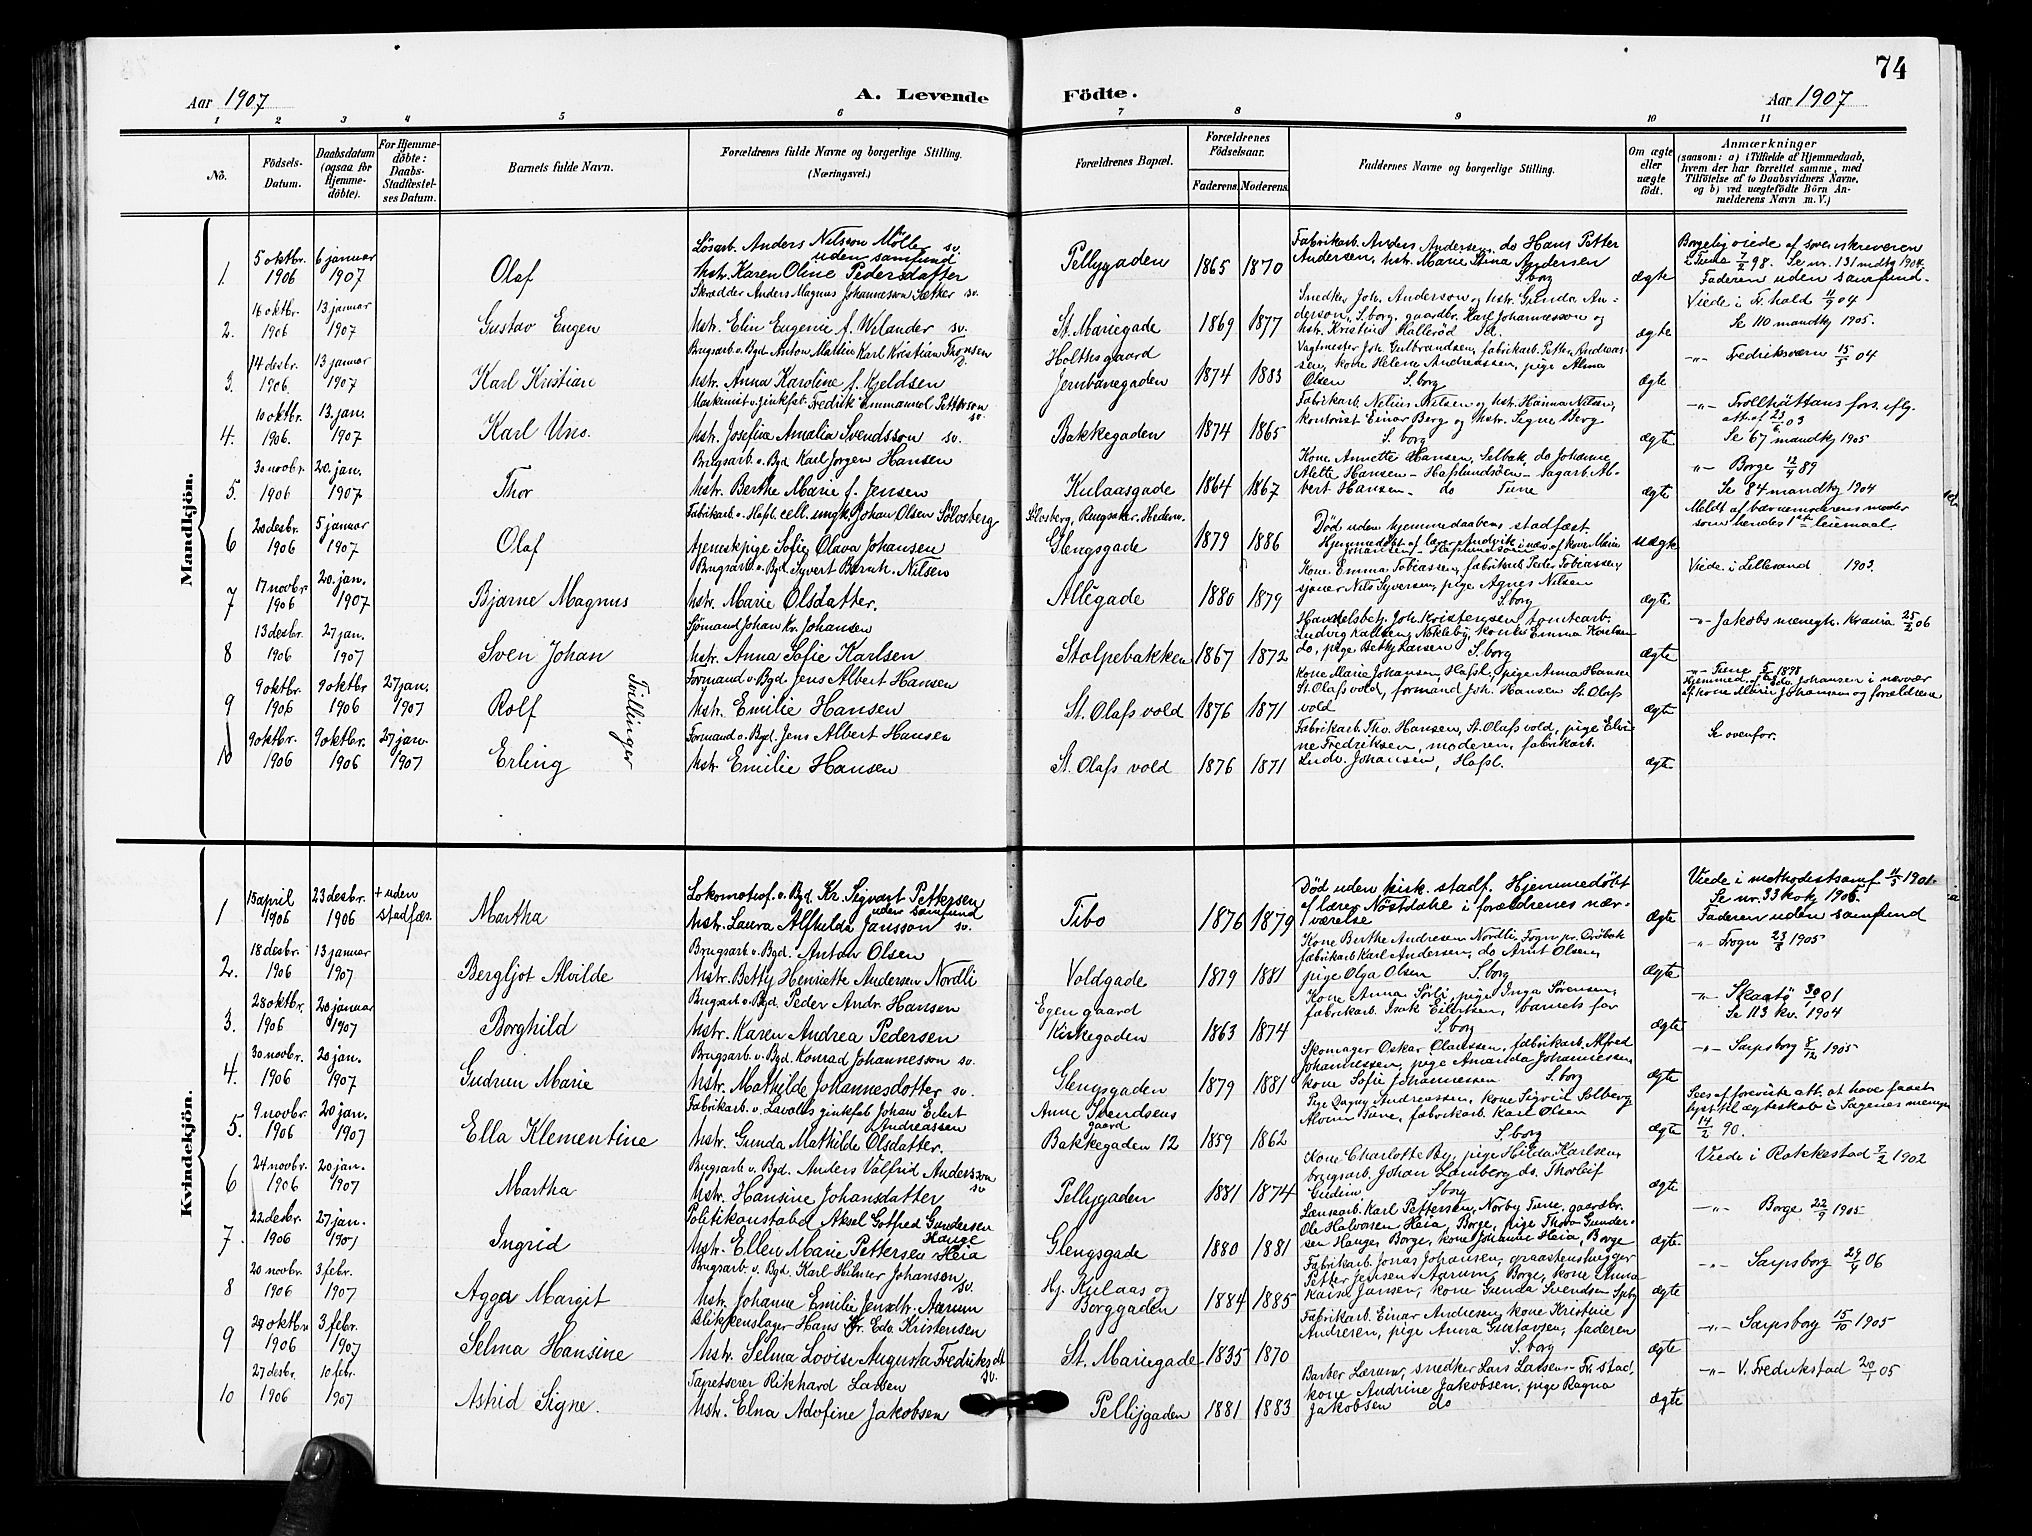 74
Aar 1907
A. Levende Födte.
Aar 1907
1 2 3 4 5 6 7 8 9 10 11
No.
Födsels-Datum.
Daabsdatum (ogsaa for Hjemmedöbte).
For Hjemmedöbte: Daabs-Stadfæstelses Datum.
Barnets fulde Navn.
Forældrenes fulde Navne og borgerlige Stilling. (Næringsvei.)
Forældrenes Bopæl.
Forældrenes Födselsaar.
Faderens. Moderens.
Faddernes Navne og borgerlige Stilling.
Om ægte eller uægte födt.
Anmærkninger
(saasom: a) i Tilfælde af Hjemmedaab, hvem der har forrettet samme, med Tilföielse af to Daabsvidners Navne, og b) ved uægtefödte Börn Anmelderens Navn m. V.)
Mandkjön.
1. 5 oktbr. 1906 6 januar 1907 Olaf
Lösarb. Anders Nilsson Möller sv. uden samfund
Hstr. Karen Oline Pedersdatter
Pellygaden 1865 1870
Fabrikarb. Anders Andersen, do Hans Petter
Andersen, hstr. Marie Stina Andersen
S.borg
ægte
Borgerlig viede af sorenskriveren
i Tune 7/2 98. Se nr. 131 mdtkj 1904.
Faderen uden samfund.
2. 16 oktbr. 1906 13 januar 1907 Gustav Eugen
Skrædder Anders Magnus Johannesson Sætker sv.
Hstr. Elin Eugenie f. Wilander sv.
St. Mariegade 1869 1877
Snedker Joh. Anderson og hstr. Gunda An-
derson, S.borg, gaardbr. Karl Johannesson og
hstr. Kristine Hallerød Id.
ægte
Viede i Fr.hald 11/9 04
Se 110 mandkj 1905.
3. 14 desbr. 1906. 13 januar 1907 Karl Kristian
Brugsarb. v. Bgd Anton Martin Karl Kristian Thorsen
Hstr. Anna Karoline f. Kjeldsen
Holthsgaard
Jernbanegaden 1874 1883
Vagtmester Joh. Gulbrandsen, fabrikarb. Petter Andreas-
sen, kone Helene Andreassen, pige Alma
Olsen S.borg
ægte
-"- Fredriksværn 15/5 04
4. 10 oktbr. 1906. 13. jan. 1907 Karl Uno.
Maskinist v. zinkfab. Fredrik Emmanuel Petterson sv.
Hstr. Josefina Amalia Svendsson sv.
Bakkegaden 1874 1865
Fabrikarb. Nelius Nilsen og hstr. Haima Nilsen,
kontorist Einar Berg og hstr. Signe Berg
S.borg
ægte
-"- Trollhättans förs. iflg.
att. af 23/6 03
Se 67 mandkj 1905
5. 30 novbr. 1906 20. jan. 1907 Thor
Brugsarb. v. Bgd Karl Jorgen Hansen
Hstr. Berthe Marie f. Jensen
Kulaasgade 1864 1867
Kone Annette Hansen, Selbak, do Johanne
Alette Hansen - Hafslundsöen - Sagarb. Al-
bert Hansen - do Tune
ægte
-"- Borge 12/4 89
Se 84 mandkj 1904
6 20 desbr. 1906 5 januar 1907 Olaf
Fabrikarb. v. Hafsl. cell. ungk. Johan Olsen Sölosberg
Tjenestepige Sofie Olava Johansen
Sölosberg, Ringsaker, Hedem.
Glengsgade 1879 1886
Död uden hjemmedaabens stadfæst.
uægte
Meldt af barnemoderens moder
som hendes 1ste leiemaal.
7 17 novbr 1906 20. jan. 1907 Bjarne Magnus
Brugsarb. v. Bgd. Syvert Bernh. Nilsen
Hstr. Marie Olsdatter.
Allégade 1880 1879
Kone Emma Tobiassen, fabrikarb. Peder Tobiassen,
sjömand Nils Syversen, pige Agnes Nilsen
S.borg
ægte
Viede i Lillesand 1903.
8 13 desbr. 1906 27 jan. 1907 Sven Johan
Sjömand Johan Kr. Johansen
Hstr. Anna Sofie Karlsen
Stolpebakken 1867 1872
Handelsbetj. Joh. Kristensen, tomtearb.
Ludvig Karlsen, Nökleby, kone Emma Karlsen
do, pige Betty Larsen S.borg
ægte
-"- Jakobs menigh. Krania 25/2 06
9 9 oktbr. 1906 9 oktbr 1906 27 jan. 1907 Rolf
Tvillinger
Formand v. Bgd. Jens Albert Hansen
Hstr. Emilie Hansen
St. Olafs vold 1876 1871
Kone Marie Johansen, Hafsl., pige Anna Hansen
St. Olafs vold, formand Joh. Hansen St. Olafs
vold
ægte
-"- Tune 5/5 1898
Hjemmed. af Edv. Johansen i nærvær
af kone Marie Johansen og forældrene
10 9 oktbr. 1906 9 oktbr. 1906 27 jan. 1907 Erling
Formand v. Bgd. Jens Albert Hansen
Hstr. Emilie Hansen
St. Olafs vold 1876 1871
Fabrikarb. Th. Hansen, St. Olafs vold, pige Elvi-
ne Fredriksen, moderen, fabrikarb.
Ludv. Johansen, Hafsl.
ægte
Se ovenfor.
Kvindekjön.
1 15 april 1906 23 desbr. 1906 + uden stadfæs. Martha
Lokomotivf. v. Bgd. Kr. Sigvart Pettersen uden samfund
Hstr. Laura Alfhilda Jansson sv.
Tibo 1876 1879
Död uden kirk. stadf. Hjemmedöbt
af lærer Nöstdahl i forældrenes nær-
værelse
ægte
Viede i methodistsamf 11/5 1901.
Se nr. 33 kvkj 1905.
Faderen uden samfund
2. 18 desbr. 1906 13 januar 1907 Bergljot Alvilde
Brugsarb. v. Bgd. Anton Olsen
Hstr. Betty Henriette Andersen Nordli
Voldgade 1879 1881
Kone Berthe Andresen Nordli, Frogn pr. Dröbak
fabrikarb. Karl Andersen, do Arnt Olsen,
pige Olga Olsen S.borg
ægte
-"- Frogn 23/3 1905
3. 28 oktbr. 1906 20 januar 1907 Borghild
Brugsarb v. Bgd. Peder Andr. Hansen
Hstr. Karen Andrea Pedersen
Egen gaard
Kirkegaden 1863 1874
Kone Anna Sörli, pige Inga Sörensen,
fabrikarb. Isak Eilertsen, barnets far
S.borg
ægte
-"- Skaatö 30/9 01
Se 113 kv. 1904
4. 30 novbr. 1906 20 jan. 1907 Gudrun Marie
Brugsarb. v. Bgd. Konrad Johannesson sv.
Hstr. Mathilde Johannesdotter sv.
Glengsgaden 1879 1881
Skomager Oskar Olaussen, fabrikarb. Alfred
Johannessen, pige Amanda Johannessen
kone Sofie Johannessen S.borg
ægte
-"- Sarpsborg 8/12 1905
5. 9 novbr. 1906 20 jan. 1907 Ella Klementine
Fabrikarb. v. Lavolds zinkfab Johan Edert Andreassen
Hstr. Gunda Mathilde Olsdatter.
Anne Svendsens gaard
Bakkegaden 12 1859 1862
Pige Dagny Andreassen, kone Sigrid Solberg
Alvim Tune, fabrikarb. Karl Olsen
S.borg
ægte
Sees af foreviste att. at have faaet
lyst til ægteskab i Sagenes menigh
14/2 90.
6 24 novbr. 1906 20 jan. 1907 Martha
Brugsarb v. Bgd. Anders Valfrid Andersson sv
Hstr. Hansine Johansdatter
Pellygaden 1881 1874
Kone Charlotte By, pige Hilda Karlsen,
brugsarb. Johan Lamberg, do. Thorleif
Gudim S.borg
ægte
Viede i Rakkestad 7/2 1902
7. 22 desbr. 1906 27 jan. 1907 Ingrid
Politikonstabel Aksel Gotfred Gundersen Hauge
Hstr. Ellen Marie Pettersen Heia
Glengsgade 1880 1881
Lænsearb. Karl Pettersen, Norby Tune, gaardbr.
Ole Halvorsen Heia, Borge, pige Thora Gunder-
sen Hauge, Borge, kone Johanne Heia, Borge
ægte.
-"- Borge 22/9 1905
8 20 novbr. 1906 3 febr. 1907 Agga Margit
Brugsarb. v. Bgd. Karl Hilmer Johanson sv.
Hstr. Johanne Emilie Jensdtr. Aarum
Hj. Kulaas og Borggaden 1884 1885
Fabrikarb. Jonas Johansen, graastenshugger
Petter Jensen Aarum, Borge, kone Anna
Kaisa Jansen, kone Gunda Svendsen Spbg
ægte
-"- Sarpsborg 29/4 06
9 29 oktbr. 1906 3 febr. 1907 Selma Hansine
Blikkenslager Hans Kr. Edv. Kristensen
Hstr. Selma Lovise Augusta Fredriksdt sv.
St. Mariegade 1835 1870
Fabrikarb. Einar Andresen, kone Kristine
Andresen, pige Anna Gustavsen, faderen
S.borg
ægte
-"- Sarpsborg 15/10 1905
10 27 desbr. 1906 10 febr. 1907 Astrid Signe.
Tapetserer Rikhard Larsen
Hstr. Elna Adofine Jakobsen
Pellygaden 1881 1883
Barber Larum, snedker Lars Larsen - Fr.stad,
kone Andrine Jakobsen, pige Ragna
Jakobsen do
ægte
-"- V. Fredrikstad 20/1 05